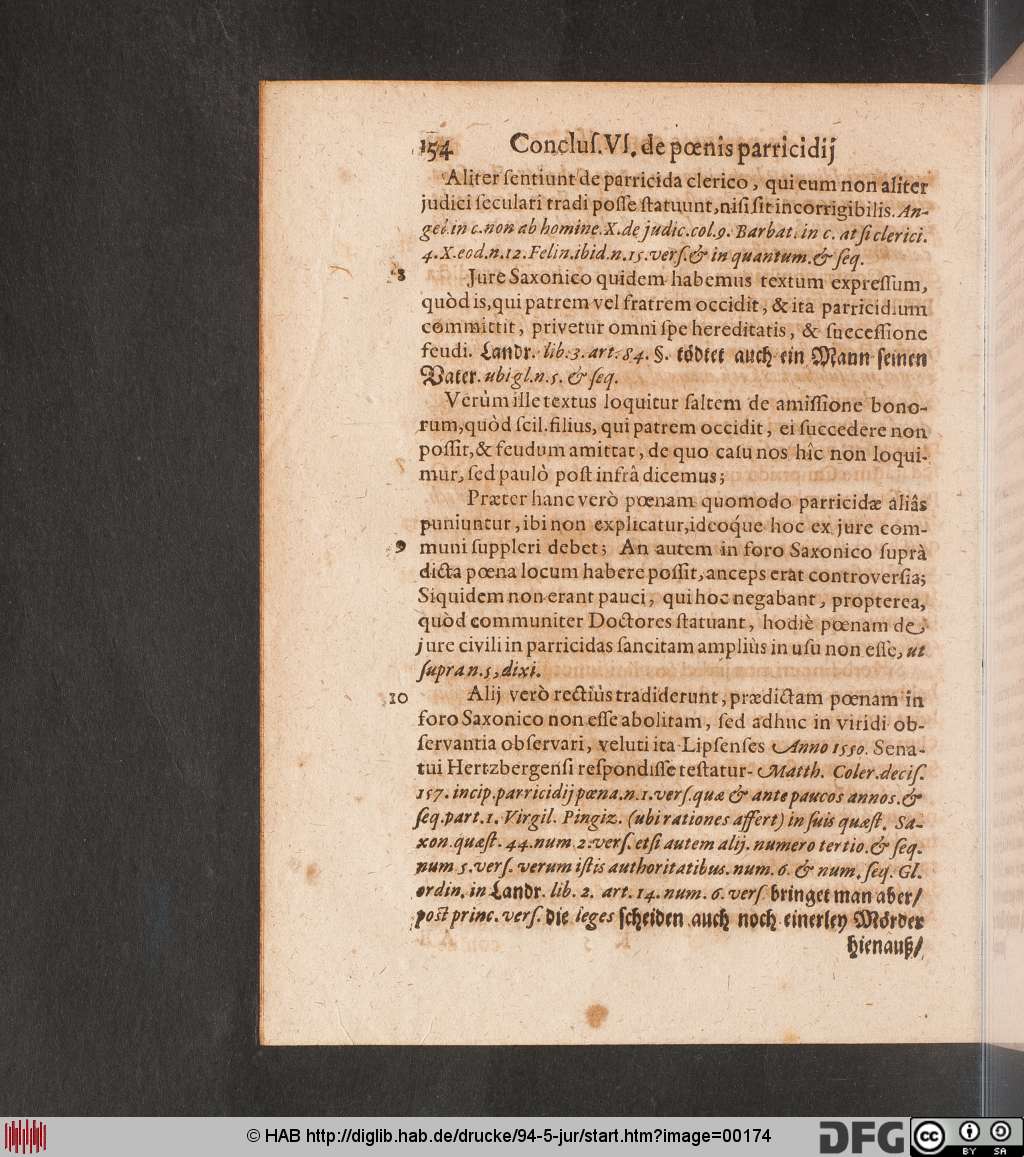 154 Concluſ. VI. de pœnis parricidij
Aliter ſentiunt de parricida clerico, qui eum non aliter
judici ſeculari tradi poſſe ſtatuunt, niſi ſit incorrigibilis. An-
gel. in c. non ab homine. X. de judic. col. 9. Barbat. in c. at ſi clerici.
4. X. eod. n. 12. Felin. ibid. n. 15. verſ. & in quantum. & ſeq.
8 Jure Saxonico quidem habemus textum expreſſum,
quòd is, qui patrem vel fratrem occidit, & ita parricidium
committit, privetur omni ſpe hereditatis, & ſucceſſione
feudi. Landr. lib. 3. art. 84. §. tödtet auch ein Mann ſeinen
Vater. ubi gl. n. 5. & ſeq.
Verùm ille textus loquitur ſaltem de amiſſione bono-
rum, quòd ſcil. filius, qui patrem occidit, ei ſuccedere non
poſſit, & feudum amittat, de quo caſu nos hîc non loqui-
mur, ſed paulò poſt infrâ dicemus;
Præter hanc verò pœnam quomodo parricidæ aliâs
puniuntur, ibi non explicatur, ideoq́ue hoc ex jure com-
9 muni ſuppleri debet; An autem in foro Saxonico ſuprà
dicta pœna locum habere poſſit, anceps erat controverſia;
Siquidem non erant pauci, qui hoc negabant, propterea,
quòd communiter Doctores ſtatuant, hodiè pœnam de
jure civili in parricidas ſancitam ampliùs in uſu non eſſe, ut
ſupra n. 5. dixi.
10 Alij verò rectiùs tradiderunt, prædictam pœnam in
foro Saxonico non eſſe abolitam, ſed adhuc in viridi ob-
ſervantia obſervari, veluti ita Lipſenſes Anno 1550. Sena-
tui Hertzbergenſi reſpondiſſe teſtatur Matth. Coler. deciſ.
157. incip. parricidij pœna. n. 1. verſ. quæ & ante paucos annos. &
ſeq. part. 1. Virgil. Pingiz. (ubi rationes affert) in ſuis quæſt. Sa-
xon. quæſt. 44. num. 2. verſ. etſi autem alij. numero tertio. & ſeq.
num 5. verſ. verum iſtis authoritatibus. num. 6. & num. ſeq. Gl.
ordin. in Landr. lib. 2. art. 14. num. 6. verſ. bringet man aber/
poſt princ. verſ. die leges ſcheiden auch noch einerley Mörder
hienauß/
© HAB http://diglib.hab.de/drucke/94-5-jur/start.htm?image=00174
DFG
cc BY SA